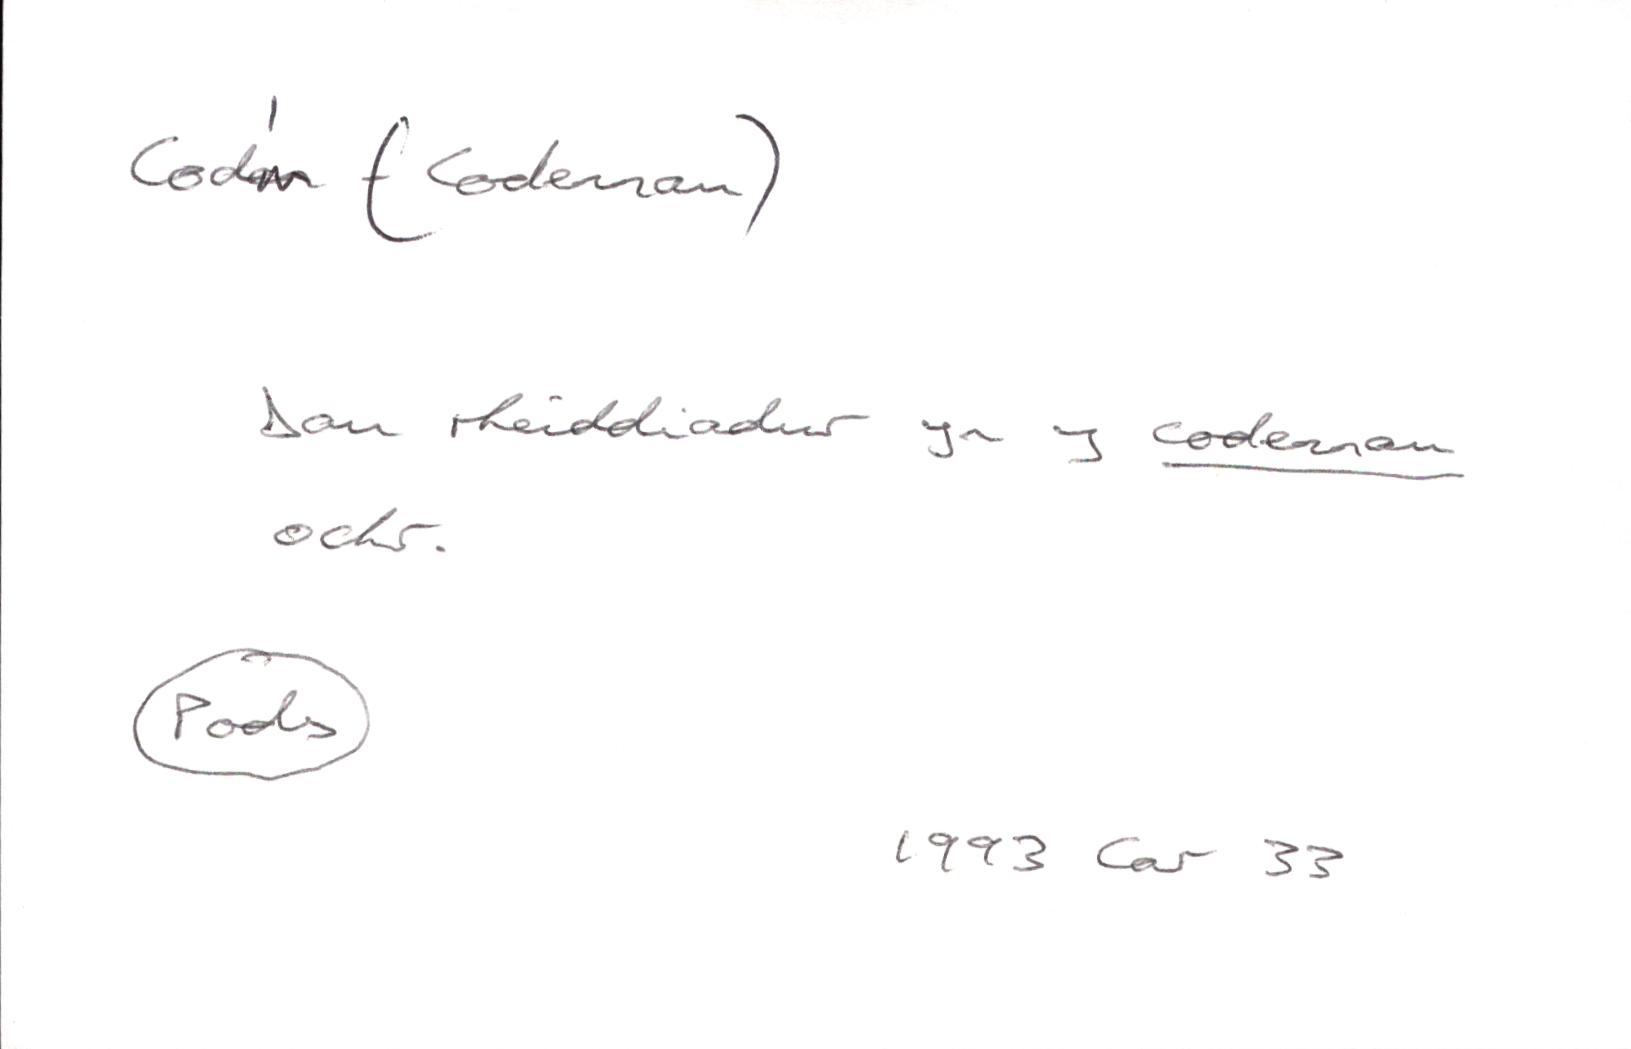 Codên (Codennau)
Dau rheiddiadur yn y codennau
ochr.
Pods
1993 Car 33